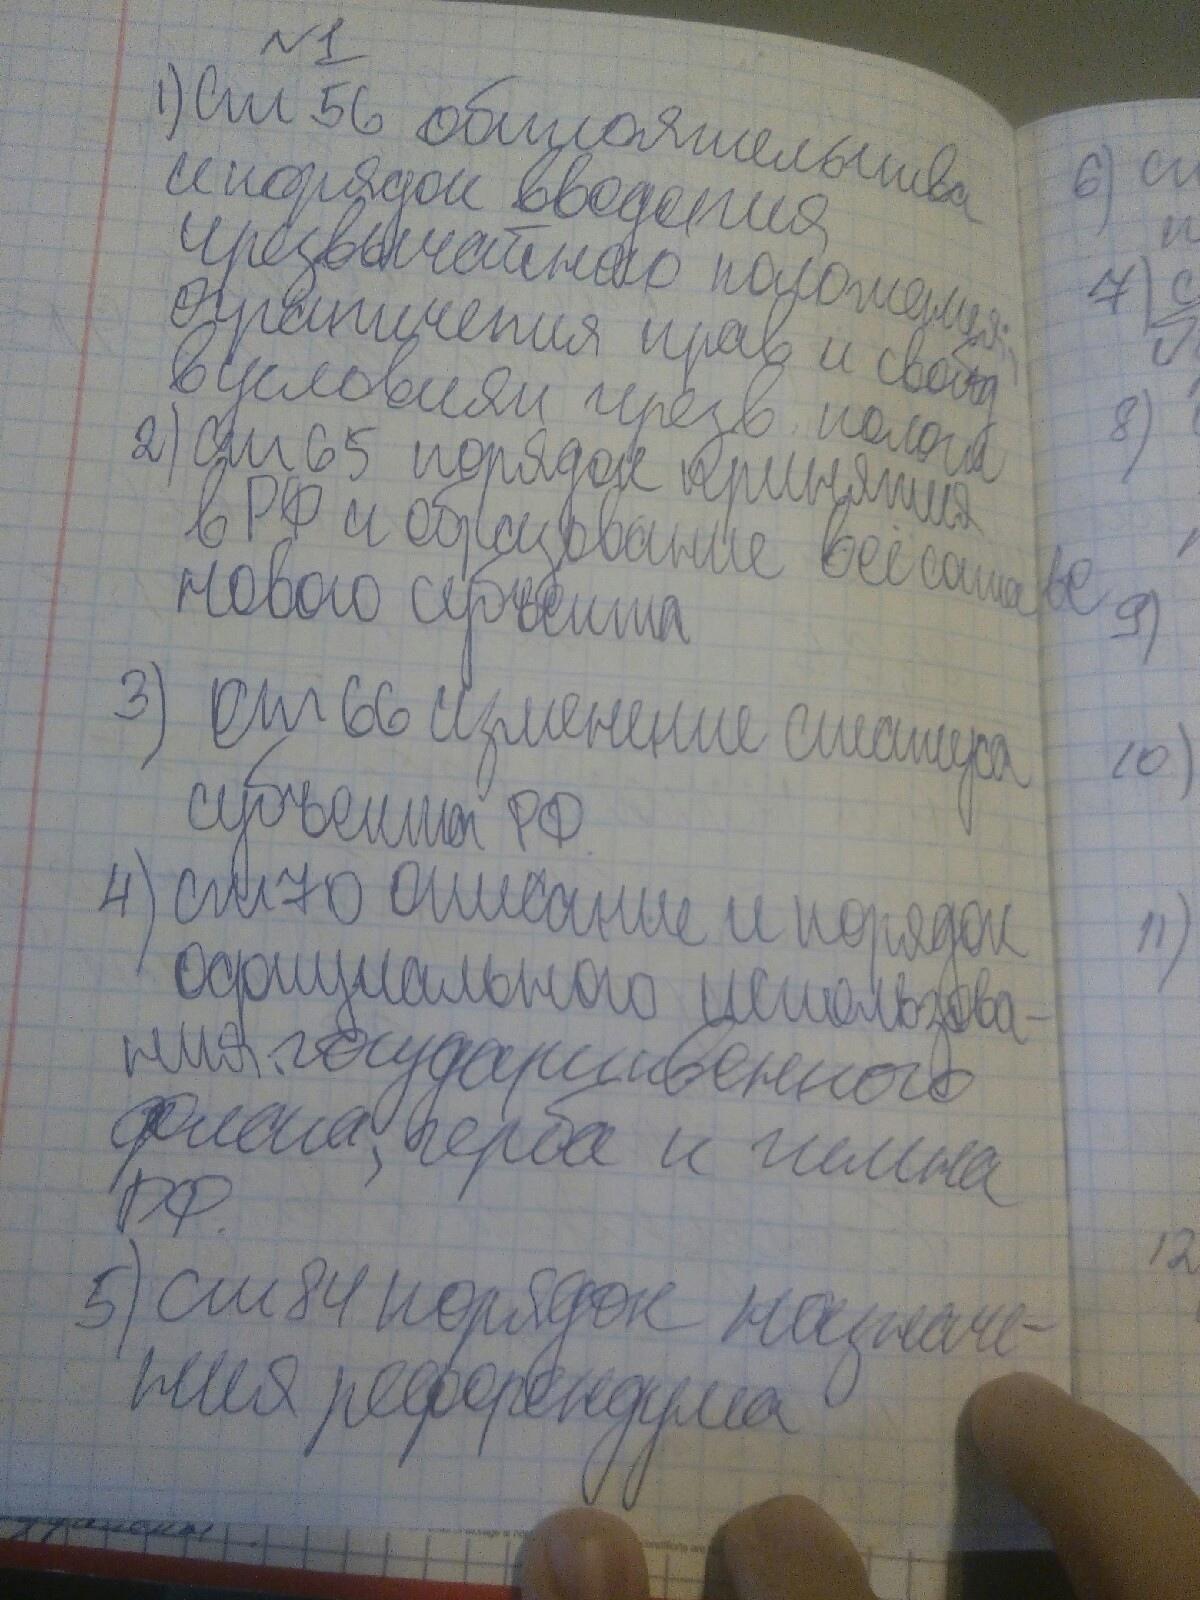 №1
1) Ст 56 обстоятельства
и порядок введения
чрезвычайного положения;
ограничения прав и свобод
в условиях чрезв. полож
2) ст 65 порядок принятия
в РФ и образование в её составе
нового субъекта
3) ст 66 изменение статуса
субъекта РФ.
4) ст 70 описание и порядок
официального использова-
ния государственного
флага, герба и гимна
РФ.
5) ст 84 порядок назначе-
ния референдума
6)
7)
8)
9)
10)
11)
12